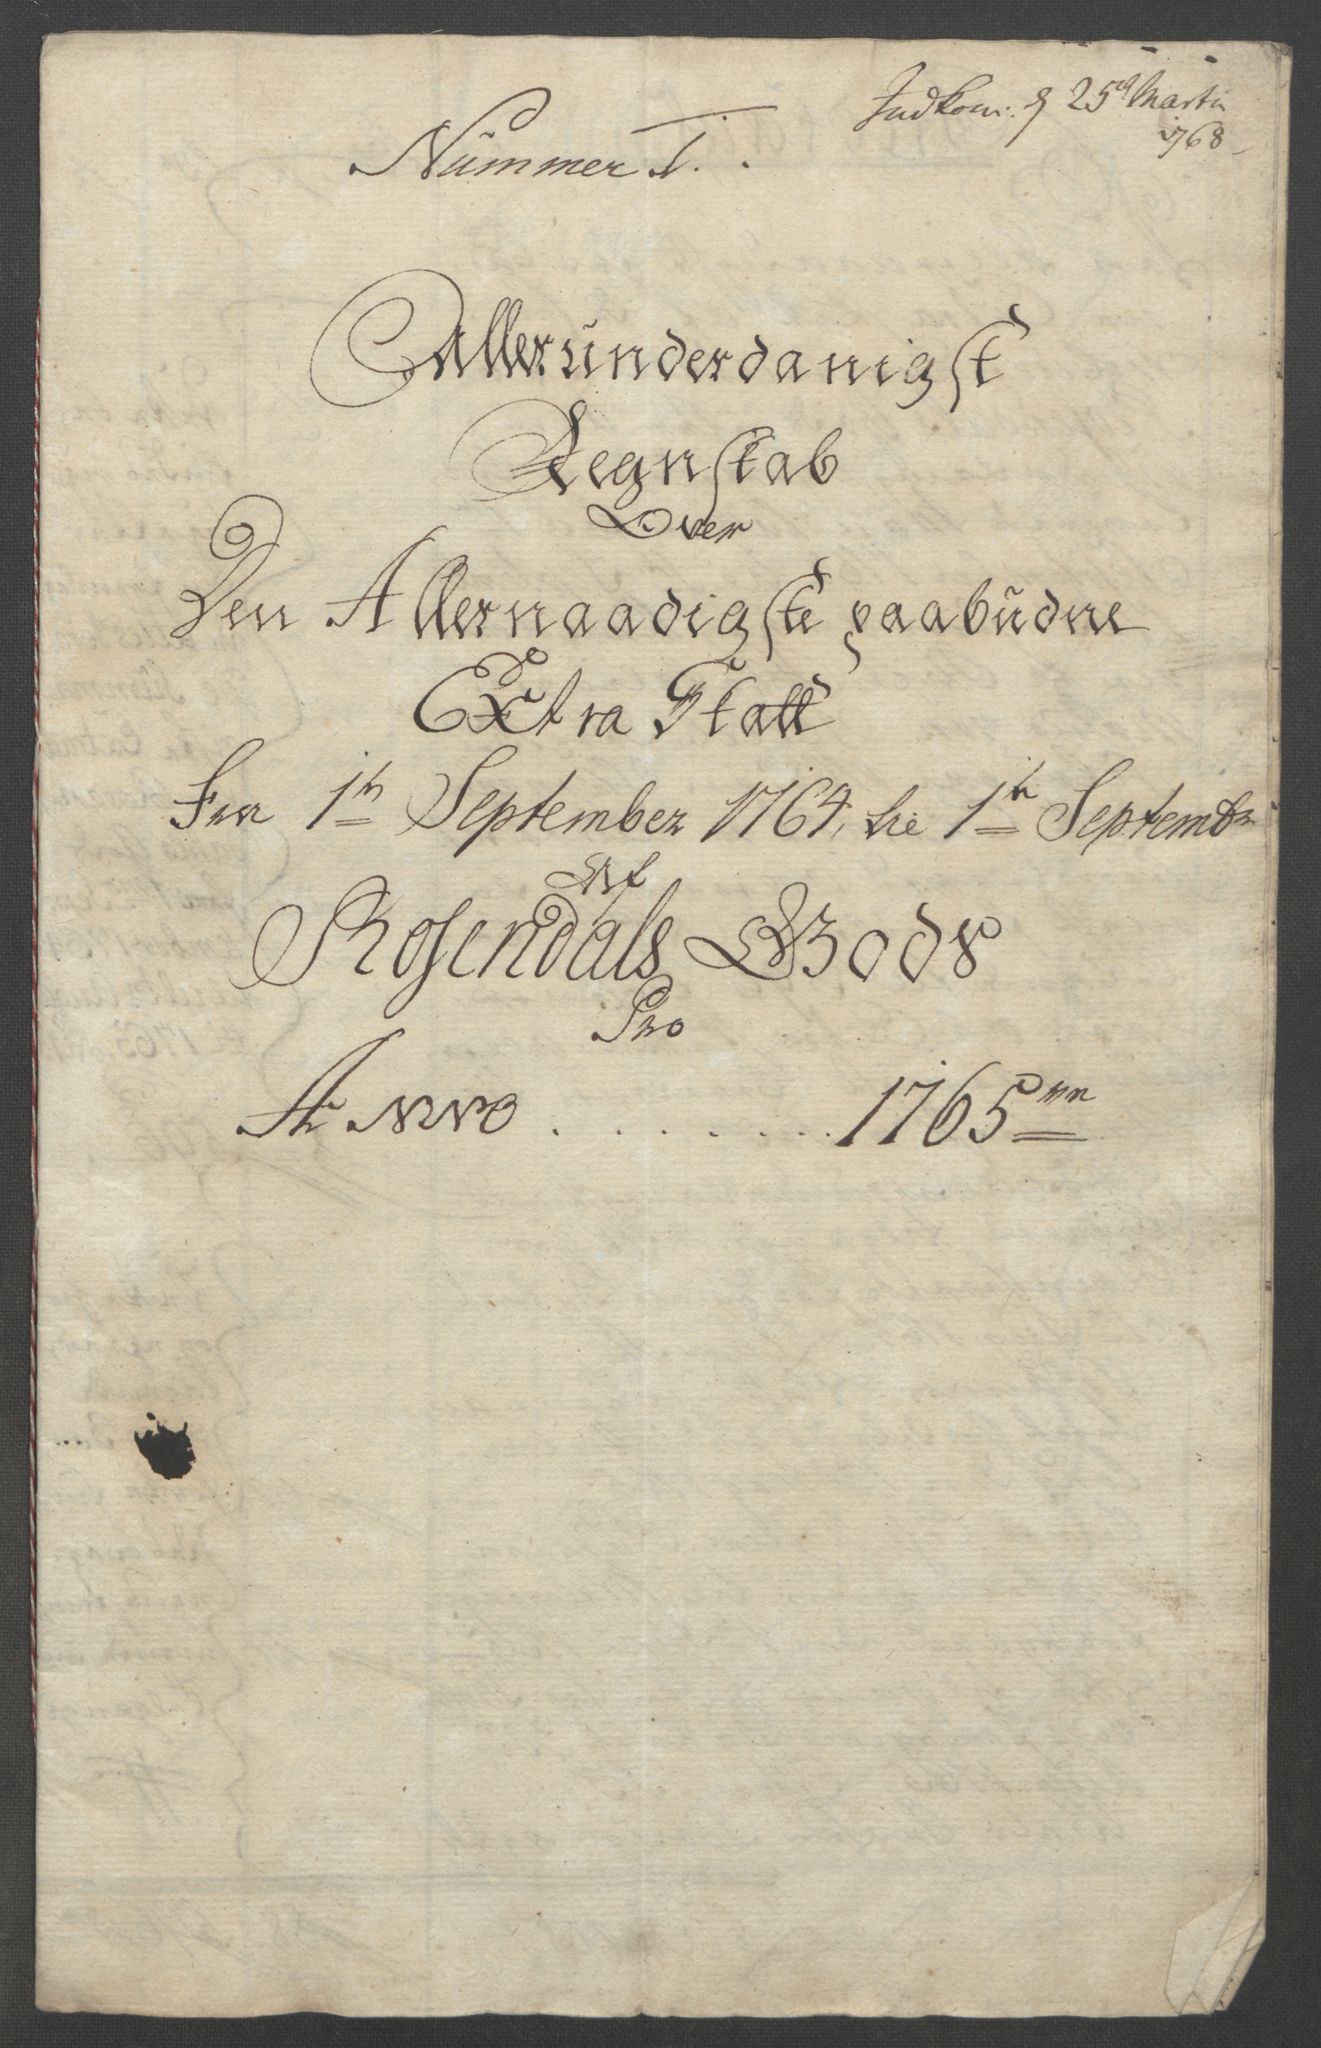 Indkom: d 25de Martii
1768
Nummer I.
Allerunderdanigst
Regnskab
Over
Den Allernaadigste paabudne
Extra Skatt
Fra 1te September 1764, til 1te Septembr
Af
Rosendals Gods
Pro
Anno . . . . . . . . 1765